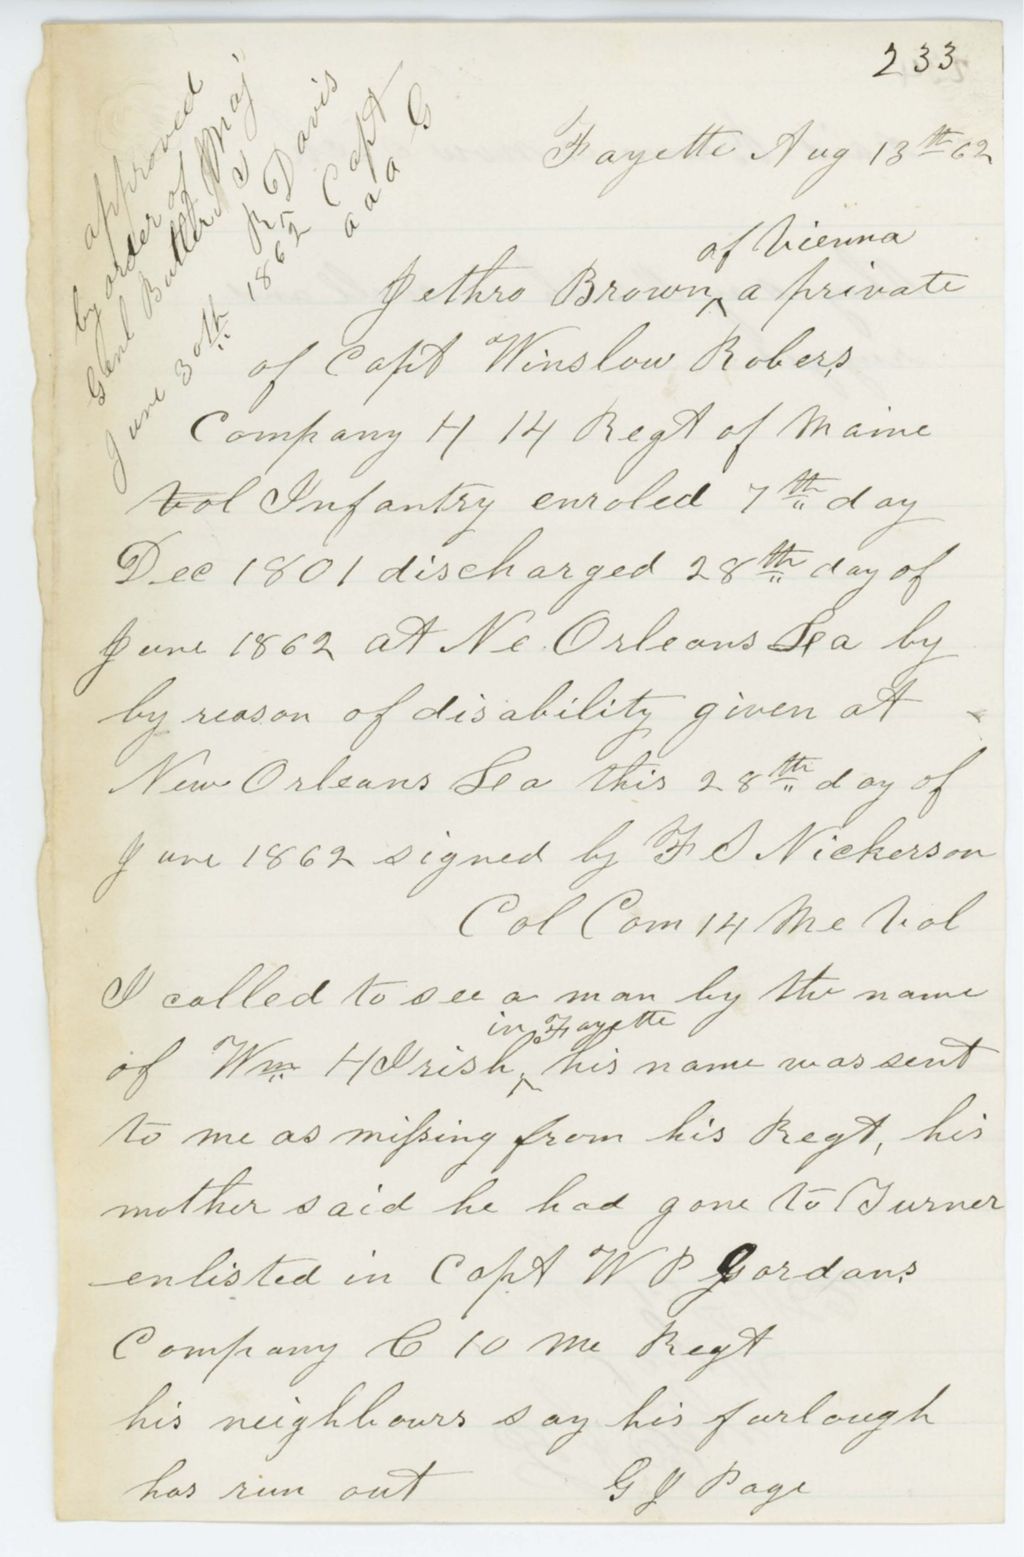 233
approved
by order of
Genl Butler Maj
June 30th 1862 R S Davis
Capt
a a a G
Fayette Aug 13th 62
of Vienna
Jethro Brown ‸ a private
of Capt Winslow Robers
Company H 14 Regt of Maine
Vol Infantry enroled 7th day
Dec 1801 discharged 28th day of
June 1862 at Ne Orleans Lea by
by reason of disability given at
New Orleans Lea this 28th day of
June 1862 signed by F S Nickerson
Col Com 14 Me Vol
I called to see a man by the name
in Fayette
of Wm H Irish, ‸ his name was sent
to me as missing from his Regt, his
mother said he had gone to Turner
enlisted in Capt W P Gordans
Company C 10 Me Regt
his neighbours say his furlough
has run out G J Page